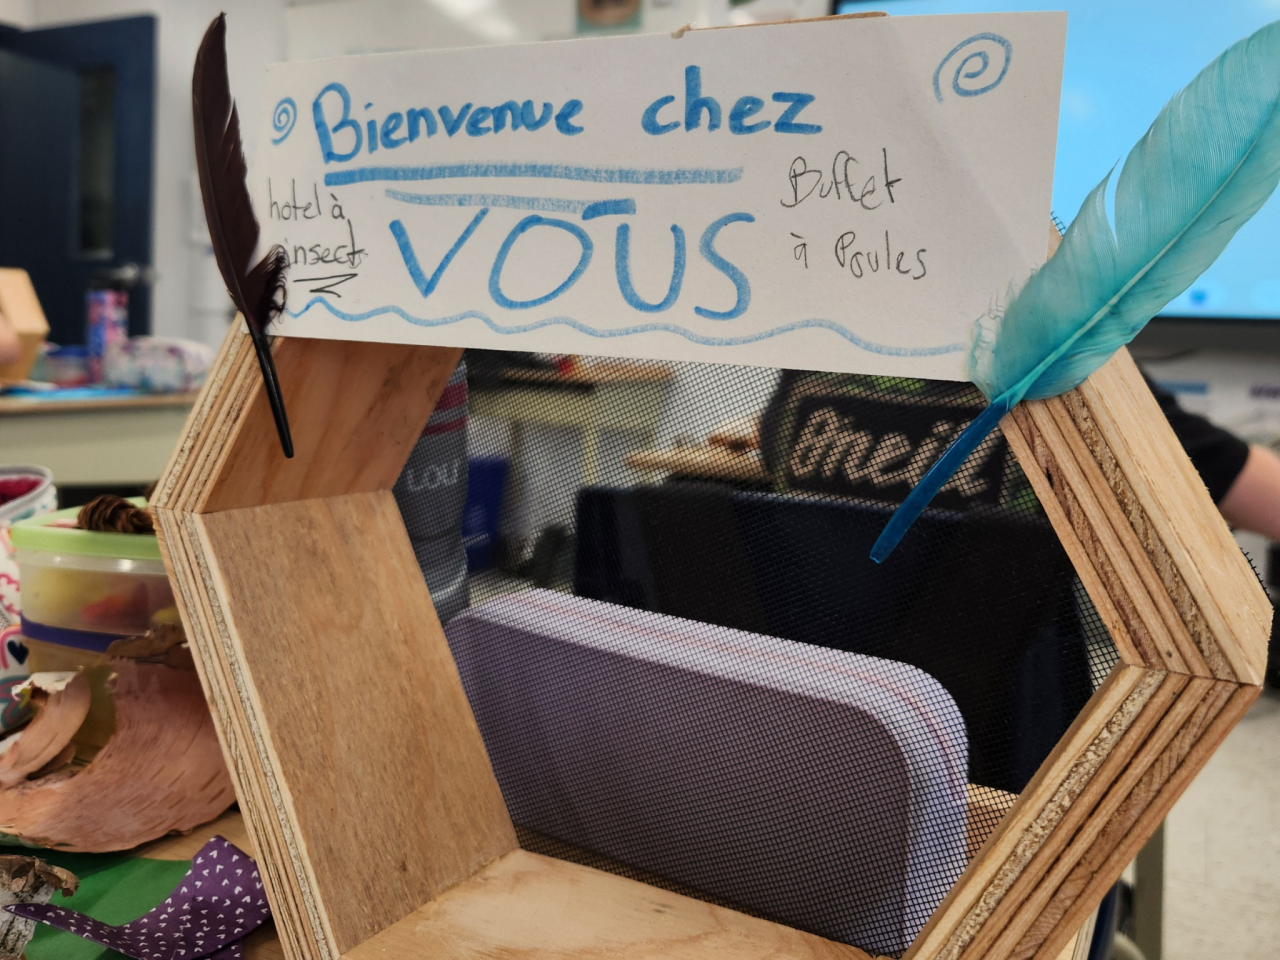 Bienvenue chez
VOUS
hotel à
insect
Buffet
à Poules
LOU